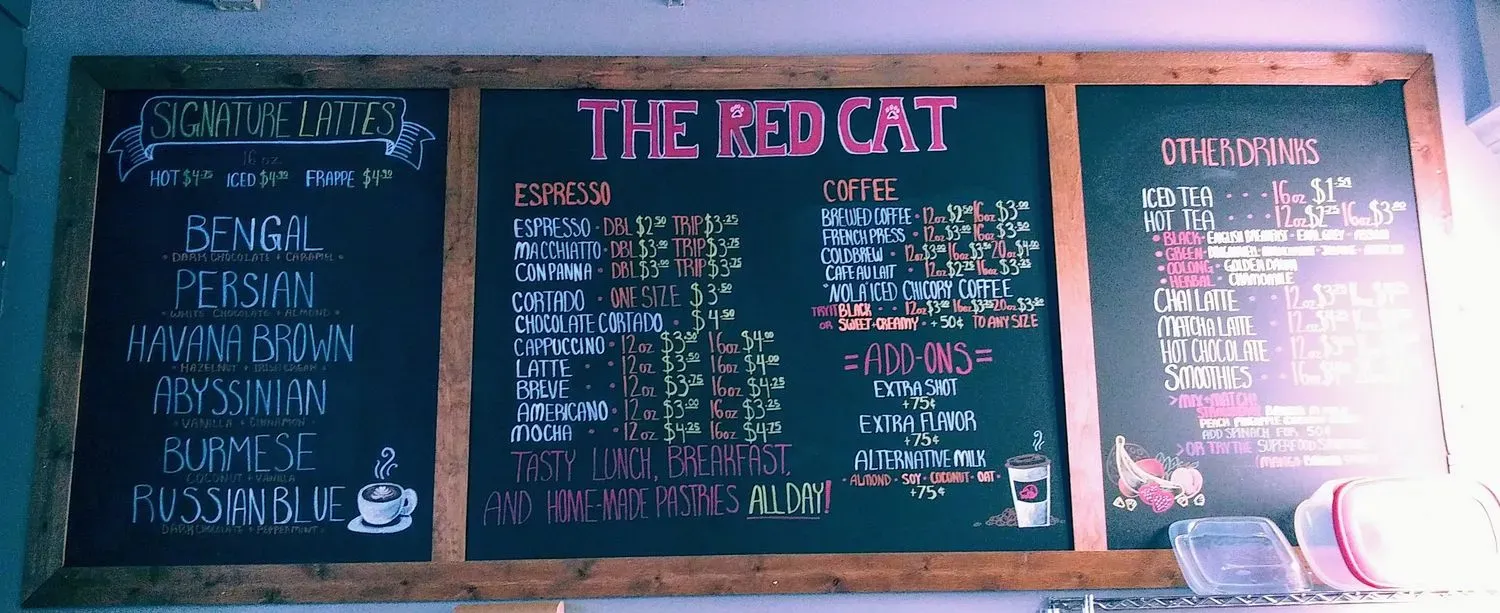 SIGNATURE LATTES
16 oz
HOT $4.75 ICED $4.90 FRAPPE $4.90
BENGAL
• DARK CHOCOLATE + CARAMEL •
PERSIAN
• WHITE CHOCOLATE + ALMOND •
HAVANA BROWN
• HAZELNUT + IRISH CREAM •
ABYSSINIAN
• VANILLA + CINNAMON •
BURMESE
COCONUT + VANILLA
RUSSIAN BLUE
DARK CHOCOLATE + PEPPERMINT •
THE RED CAT
ESPRESSO
ESPRESSO • DBL $2.50 TRIP $3.25
MACCHIATTO • DBL $3.00 TRIP $3.75
CON PANNA • DBL $3.00 TRIP $3.75
CORTADO • ONE SIZE $3.50
CHOCOLATE CORTADO • $4.50
CAPPUCCINO • 12oz $3.50 16oz $4.00
LATTE • • 12oz $3.50 16oz $4.00
BREVE • • 12oz $3.75 16oz $4.25
AMERICANO • 12oz $3.00 16oz $3.25
MOCHA • • 12oz $4.25 16oz $4.75
TASTY LUNCH, BREAKFAST,
AND HOME-MADE PASTRIES ALL DAY!
COFFEE
BREWED COFFEE • 12oz $2.50 16oz $3.00
FRENCH PRESS • 12oz $3.00 16oz $3.50
COLDBREW • 12oz $3.00 16oz $3.50 20oz $4.00
CAFE AU LAIT • 12oz $2.75 16oz $3.25
"NOLA" ICED CHICORY COFFEE
TRY IT BLACK • 12oz $3.00 16oz $3.25 20oz $3.50
OR SWEET+CREAMY • +50¢ TO ANY SIZE
=ADD-ONS=
EXTRA SHOT
+75¢
EXTRA FLAVOR
+75¢
ALTERNATIVE MILK
• ALMOND • SOY • COCONUT • OAT •
+75¢
OTHER DRINKS
ICED TEA • • • 16oz $1.50
HOT TEA • • • 12oz $2.75 16oz $3.00
• BLACK • ENGLISH BREAKFAST • EARL GREY • ASSAM
• GREEN •
• OOLONG • GOLDEN
• HERBAL • CHAMOMILE
CHAI LATTE • 12oz
MATCHA LATTE • 12oz
HOT CHOCOLATE • 12oz
SMOOTHIES • • 16oz
>MIX+MATCH!
STRAWBERRY BANANA
PEACH PINEAPPLE
ADD SPINACH FOR 50¢
>OR TRY THE SUPERFOOD
(MANGO